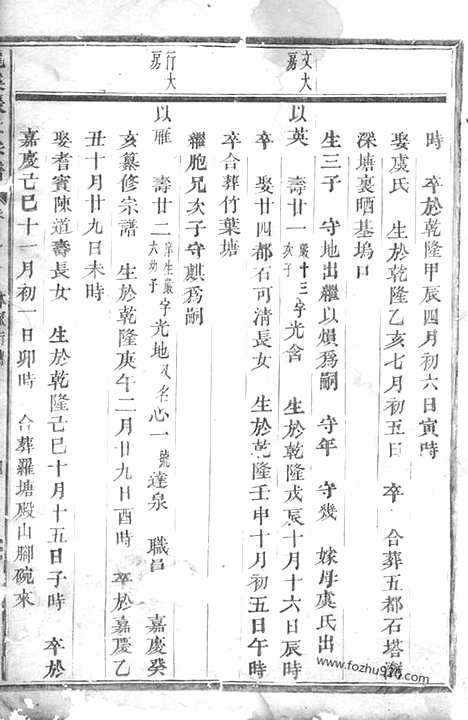 時　卒於乾隆甲辰四月初六日寅時
娶虞氏　生於乾隆乙亥七月初五日　卒　合葬五都石塔
深塘裏晒基塢口
生三子　守地出繼以熉爲嗣　守年　守幾　嫁母虞氏出
文大房
以英　壽廿一　嚴十三　次子　字光含　生於乾隆戊辰十月十六日辰時
卒　娶廿四都石可清長女　生於乾隆壬申十月初五日午時
卒合葬竹葉塘
繼胞兄次子守麒爲嗣
行大房
以雁　壽廿二　庠生嚴六幼子　字光地又名心一號達泉　職員　嘉慶癸
亥纂修宗譜　生於乾隆庚午二月廿九日酉時　卒於嘉慶乙
丑十月廿九日未時
娶耆賓陳道壽長女　生於乾隆己巳十月十五日子時　卒於
嘉慶己巳十一月初一日卯時　合葬羅塘殿山腳碗來
www.fozhu920.com